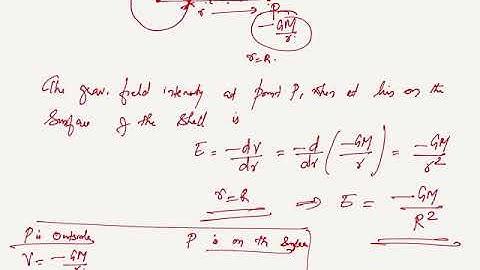 r P
-GM/r
r=R.
The grav. field intensity at point P, when it lies on the
Surface of the Shell is
E = -dV/dr = -d/dr (-GM/r) = -GM/r²
r=R ⇒ E = -GM/R²
P is outside P is on the Surface
V = -GM/r